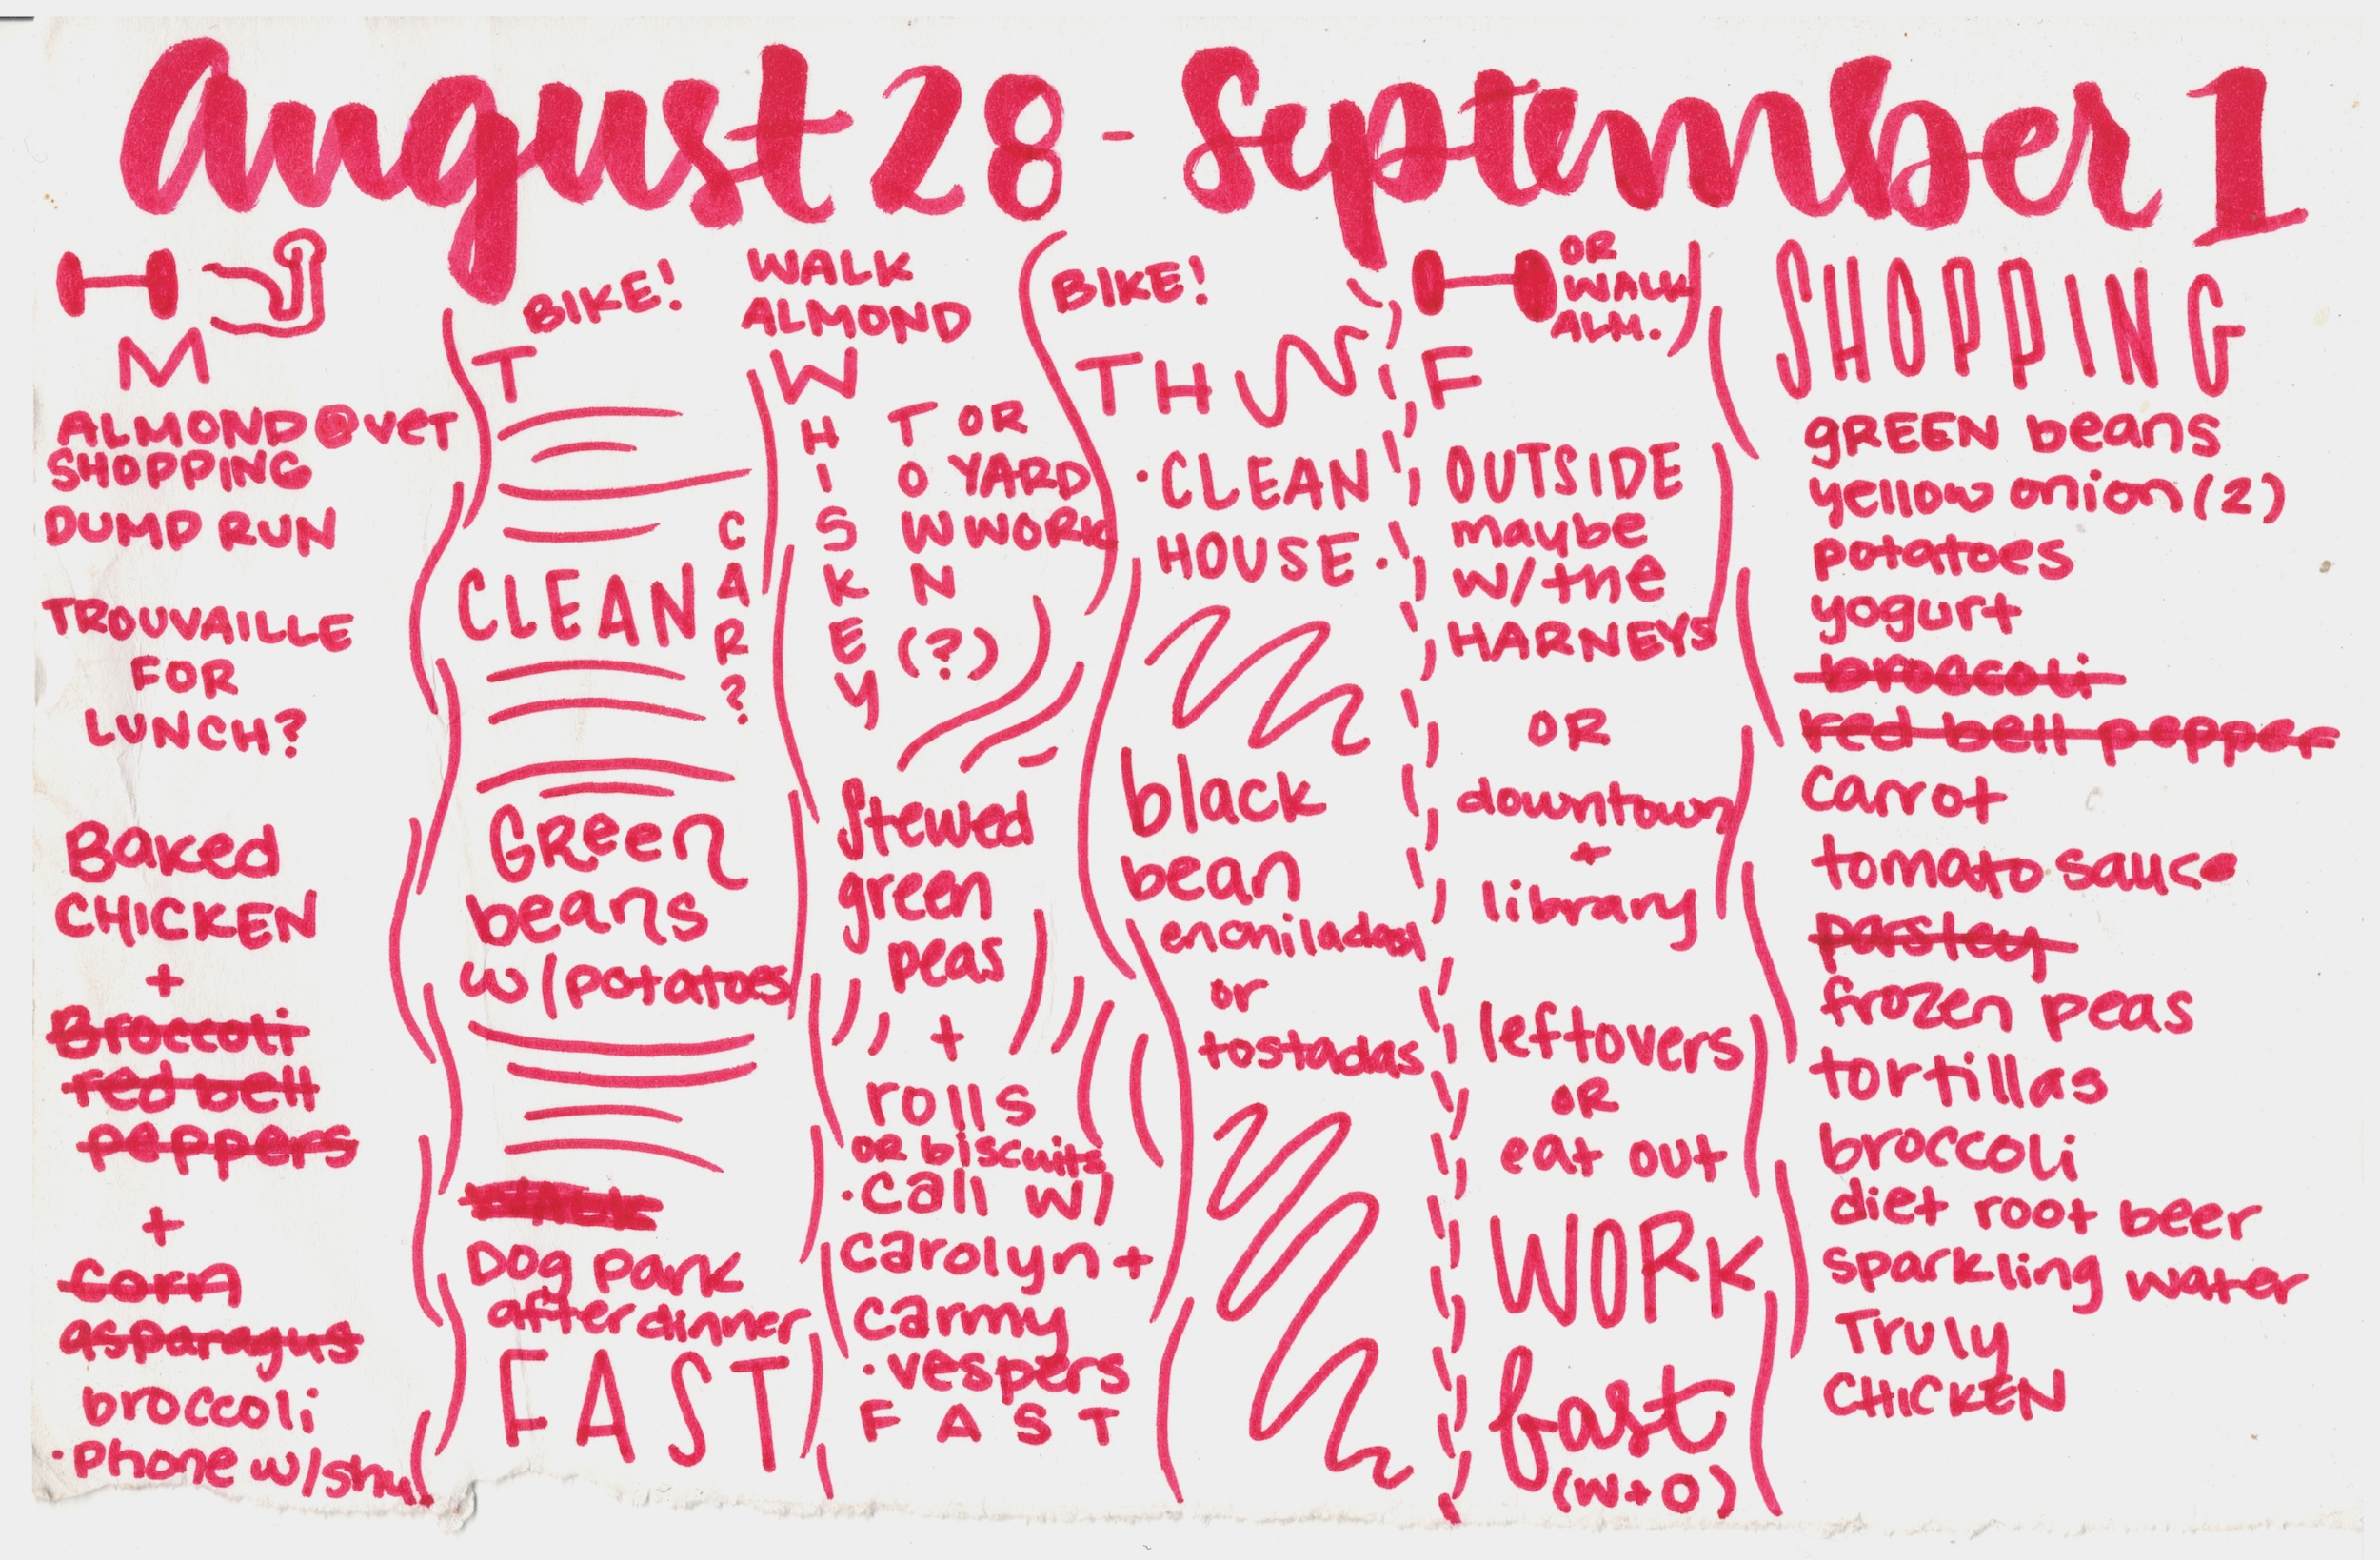 August 28 - September 1
M
ALMOND @ VET
SHOPPING
DUMP RUN
TROUVAILLE
FOR
LUNCH?
Baked
CHICKEN
+
Broccoli
red bell
peppers
+
corn
asparagus
broccoli
· Phone w/ shy
BIKE!
T
CLEAN
CAR?
GReen
beans
w/ potatoes
Dog park
after dinner
FAST
WALK
ALMOND
W
HISKEY
TOWN
(?)
OR
YARD
WORK
Stewed
green
peas
+
rolls
OR biscuits
· call w/
carolyn +
carmy
· vespers
FAST
BIKE!
TH
· CLEAN
HOUSE ·
black
bean
enchiladas
or
tostadas
OR
WALK
ALM.
F
OUTSIDE
maybe
w/ the
HARNEYS
OR
downtown
+
library
leftovers
OR
eat out
WORK
fast
(W+O)
SHOPPING
gREEN beans
yellow onion (2)
potatoes
yogurt
broccoli
red bell pepper
carrot
tomato sauce
parsley
frozen peas
tortillas
broccoli
diet root beer
sparkling water
Truly
CHICKEN